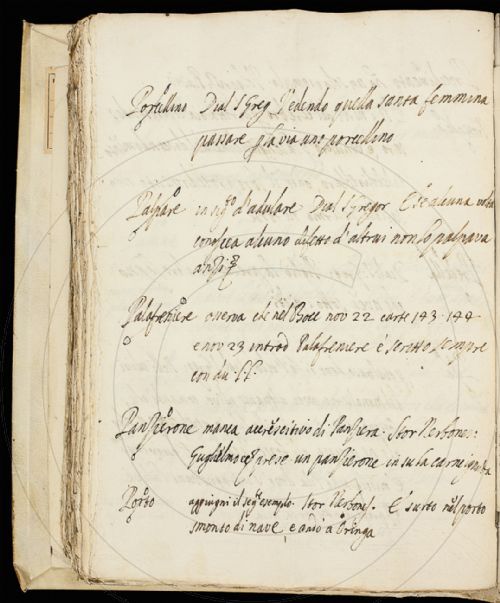 Porcellino Dial S Greg Vedendo quella santa femmina
passare p la via uno porcellino
Palpare in sig.to d'adulare Dial S Gregor E se alcuna volta
conoscea alcuno difetto d'altrui non lo palpava
anzi
Palafreniere osserva che nel Bocc nov 22 carte 143 · 144
e nov 23 introd Palafreniere è scritto sempre
con du · ff ·
Panzierone manca accrescitivo di Panziera · Stor Nerbones:
Guglielmo preso un panzierone in su la carne
Porto aggiugni il seg.te esempio · Stor Nerbones · E surto nel porto
smontò di nave e andò a Oringa